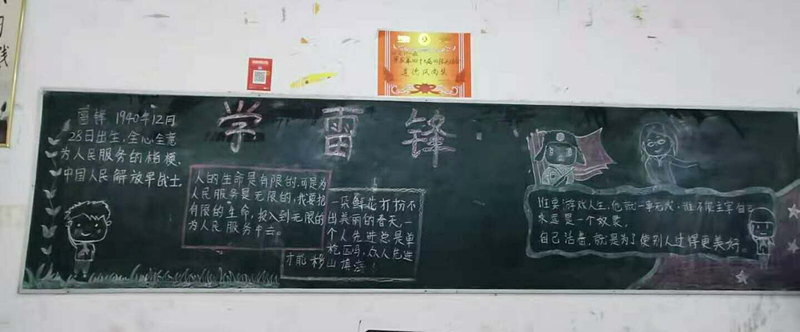 学雷锋
雷锋 1940年12月
28日出生,全心全意
为人民服务的楷模,
中国人民解放军战士。
人的生命是有限的,可是为
人民服务是无限的,我要把
有限的生命,投入到无限的
为人民服务中去。
一朵鲜花打扮不
出美丽的春天,一
个人先进总是单
众人先进
才能移山填海!
谁要游戏人生,他就一事无成,谁不能主宰自己
永远是一个奴隶。
自己活着,就是为了使别人过得更美好。
道德风尚奖